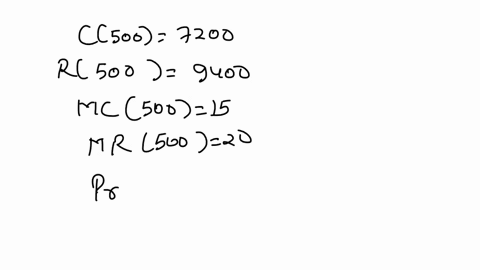 C(500) = 7200
R(500) = 9400
MC(500) = 15
MR(500) = 20
Pr